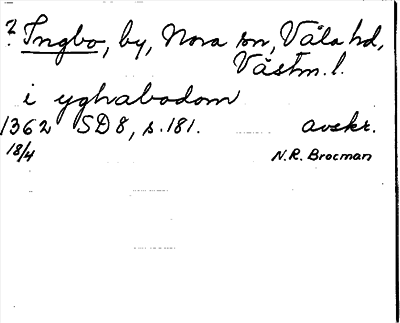 ? Ingbo, by, Nora sn, Våla hd,
Västm. l.
i yghabodom
1362 SD 8, s. 181. avskr.
18/4 N.R. Brocman